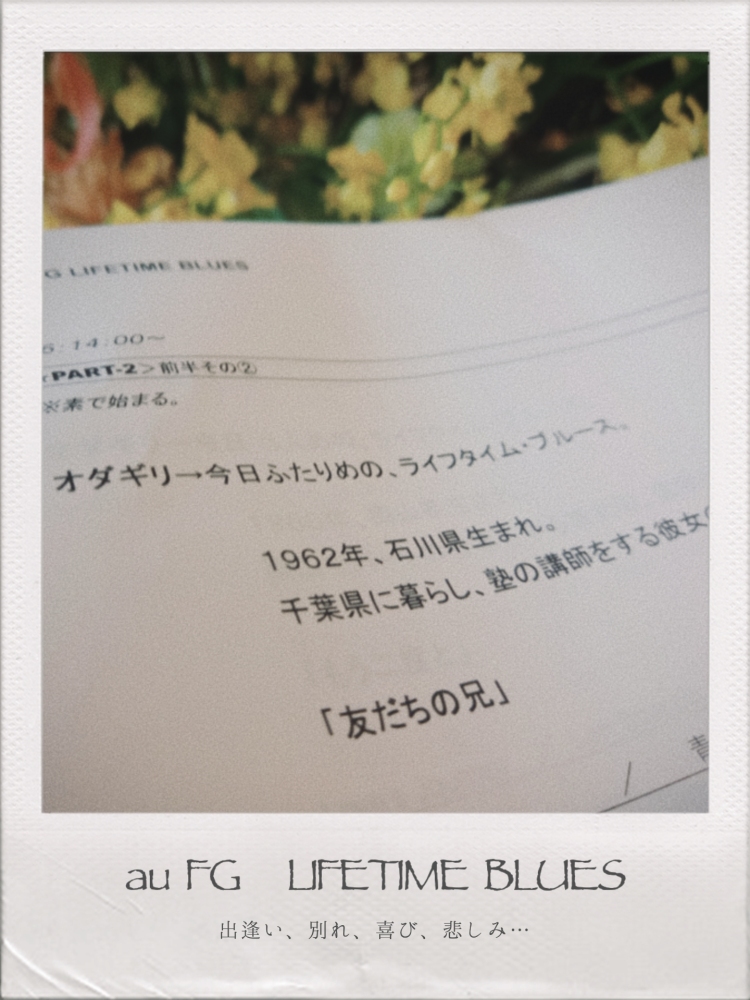 G LIFETIME BLUES
5:14:00〜
PART-2＞前半その②
※素で始まる。
オダギリ→今日ふたりめの、ライフタイム・ブルース。
1962年、石川県生まれ。
千葉県に暮らし、塾の講師をする彼女の
「友だちの兄」
/ 青
au FG LIFETIME BLUES
出逢い、別れ、喜び、悲しみ…